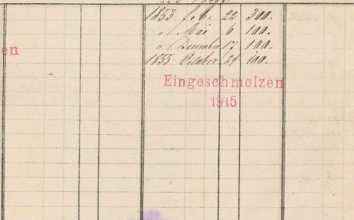 1853 Feb. 22 300.
" Mai 6 100.
" December 17 100.
1855 October 29 100.
en
Eingeschmolzen
1915